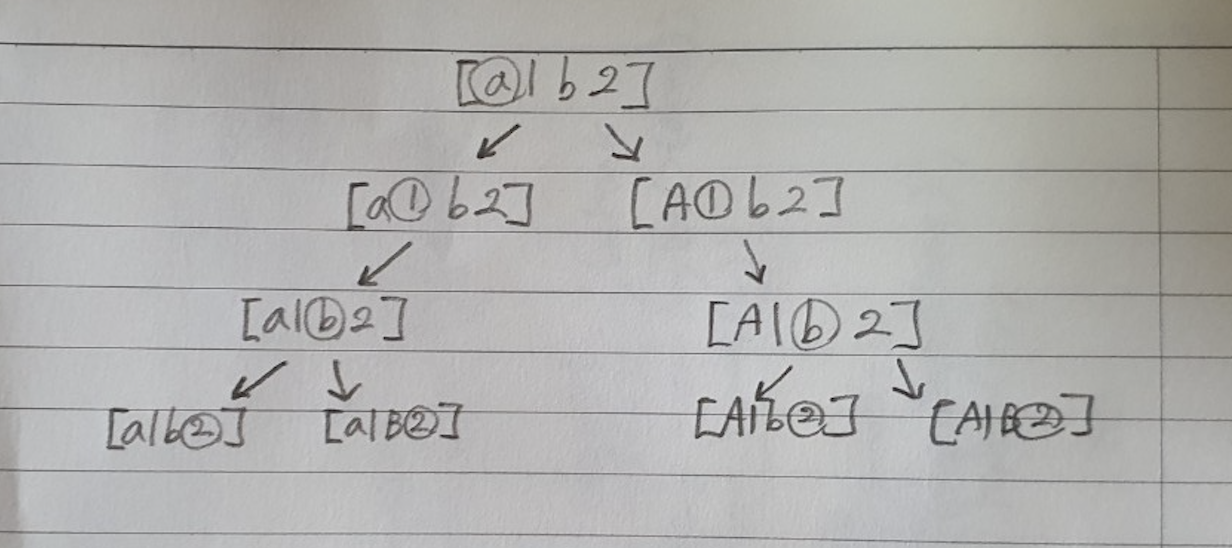 [a1b2]
[a1b2] [A1b2]
[a1b2] [A1b2]
[a1b2] [a1B2] [A1b2] [A1B2]